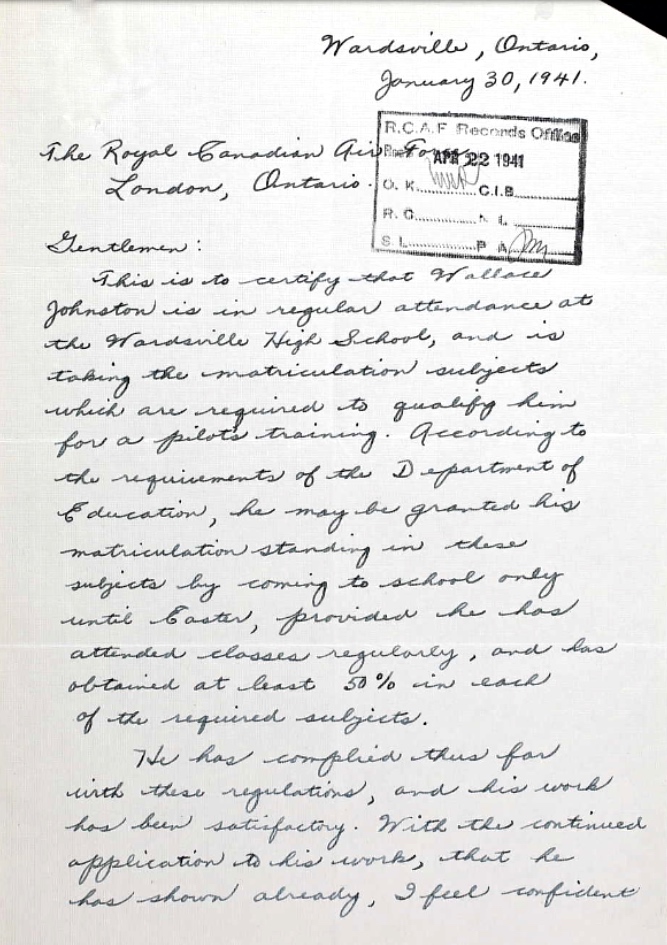 Wardsville, Ontario,
January 30, 1941.
R.C.A.F. Records Office
APR 22 1941
O. K. C.I.B.
R. C.
S. L. P. A.
The Royal Canadian Air Force
London, Ontario.
Gentlemen:
This is to certify that Wallace
Johnston is in regular attendance at
the Wardsville High School, and is
taking the matriculation subjects
which are required to qualify him
for a pilot's training. According to
the requirements of the Department of
Education, he may be granted his
matriculation standing in these
subjects by coming to school only
until Easter, provided he has
attended classes regularly, and has
obtained at least 50% in each
of the required subjects.
He has complied thus far
with these regulations, and his work
has been satisfactory. With the continued
application to his work, that he
has shown already, I feel confident